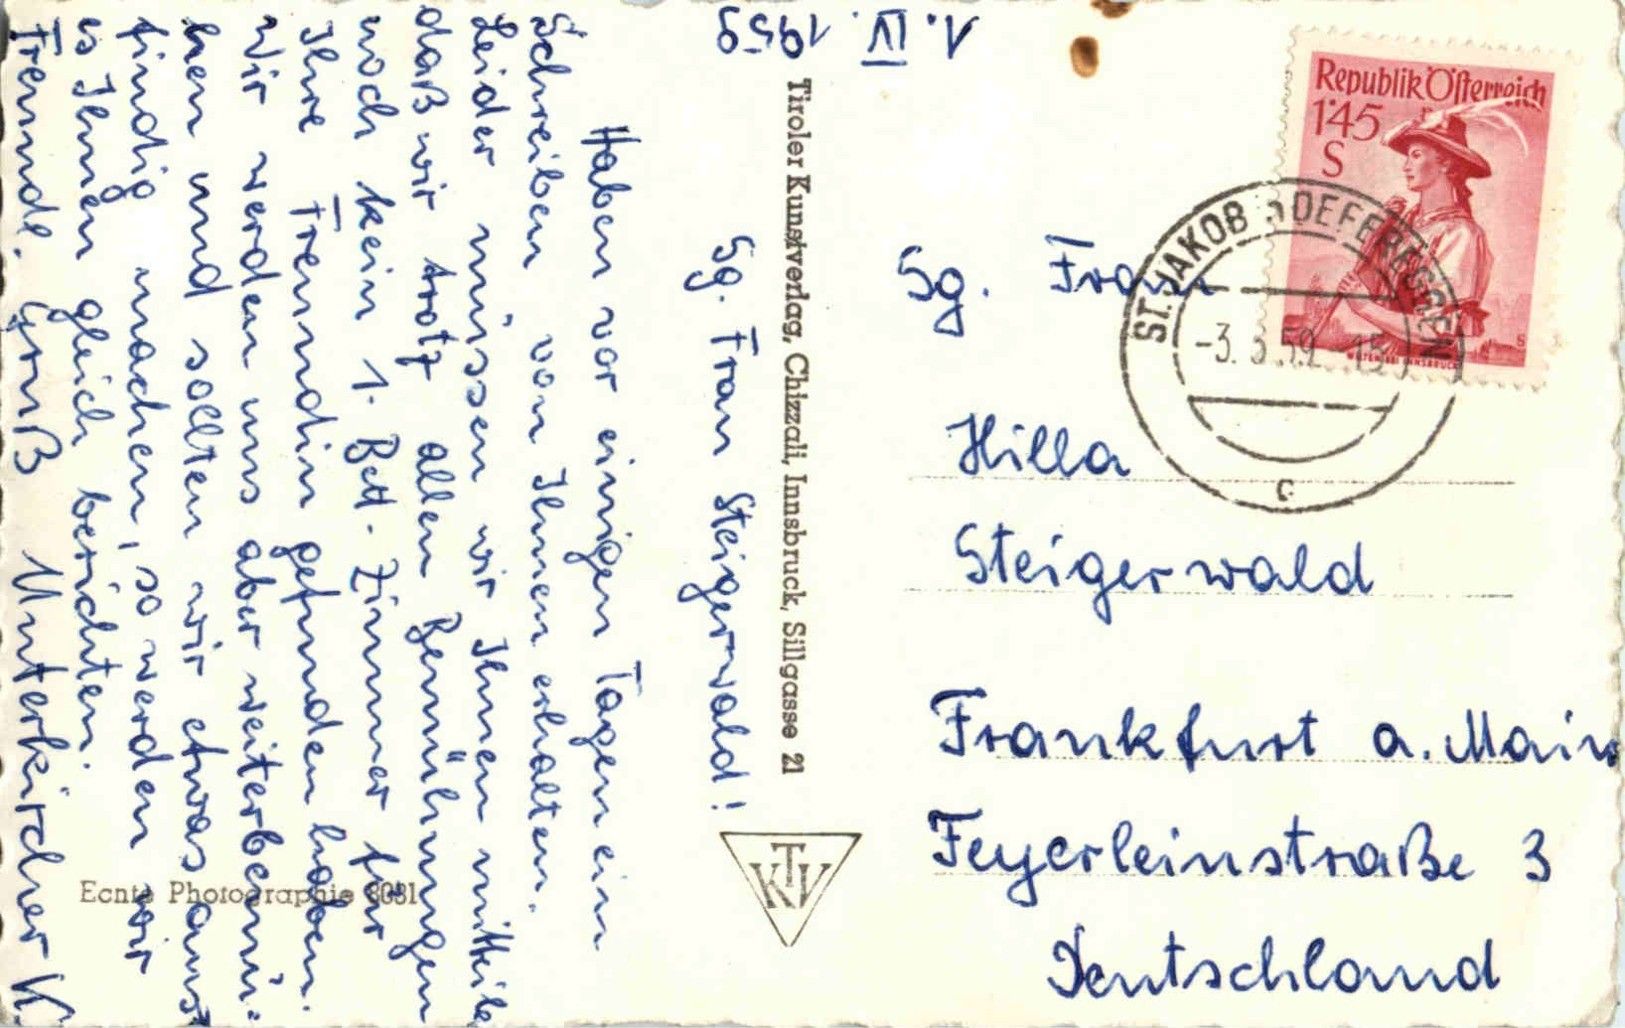 1. IV. 1959
Sg. Frau Steigerwald!
Haben vor einigen Tagen ein
Schreiben, von Ihnen erhalten.
Leider müssen wir Ihnen mitteile
daß wir trotz allen Bemühungen
noch kein 1. Bett-Zimmer für
Ihre Freundin gefunden haben.
Wir werden uns aber weiterbemü-
hen und sollten wir etwas aus
findig machen, so werden wir
es Ihnen gleich berichten.
Freundl. Gruß Unterkircher K.
Echte Photographie 8081
Tiroler Kunstverlag, Chizzali, Innsbruck, Sillgasse 21
KTV
Republik Österreich
1·45
S
ST. JAKOB DEFEREGGEN
-3. 59 -15
c
Sg. Frau
Hilla
Steigerwald
Frankfurt a. Main
Feyerleinstraße 3
Deutschland